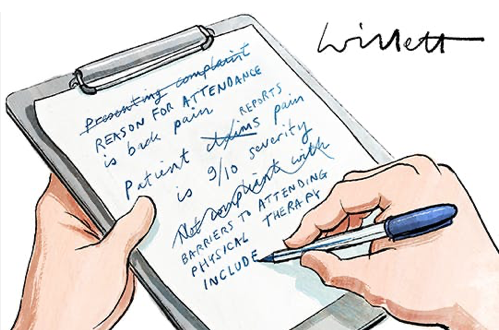 Willett
Presenting complaint
REASON FOR ATTENDANCE
is back pain
REPORTS
Patient claims pain
is 9/10 severity
Not compliant with
BARRIERS TO ATTENDING
PHYSICAL THERAPY
INCLUDE